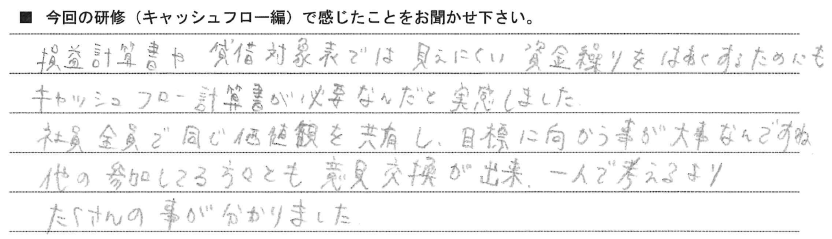 ■ 今回の研修（キャッシュフロー編）で感じたことをお聞かせ下さい。
損益計算書や貸借対象表では見えにくい資金繰りをはあくするためにも
キャッシュフロー計算書が必要なんだと実感しました
社員全員で同じ価値観を共有し、目標に向かう事が大事なんですね
他の参加してる方々とも意見交換が出来、一人で考えるより
たくさんの事が分かりました